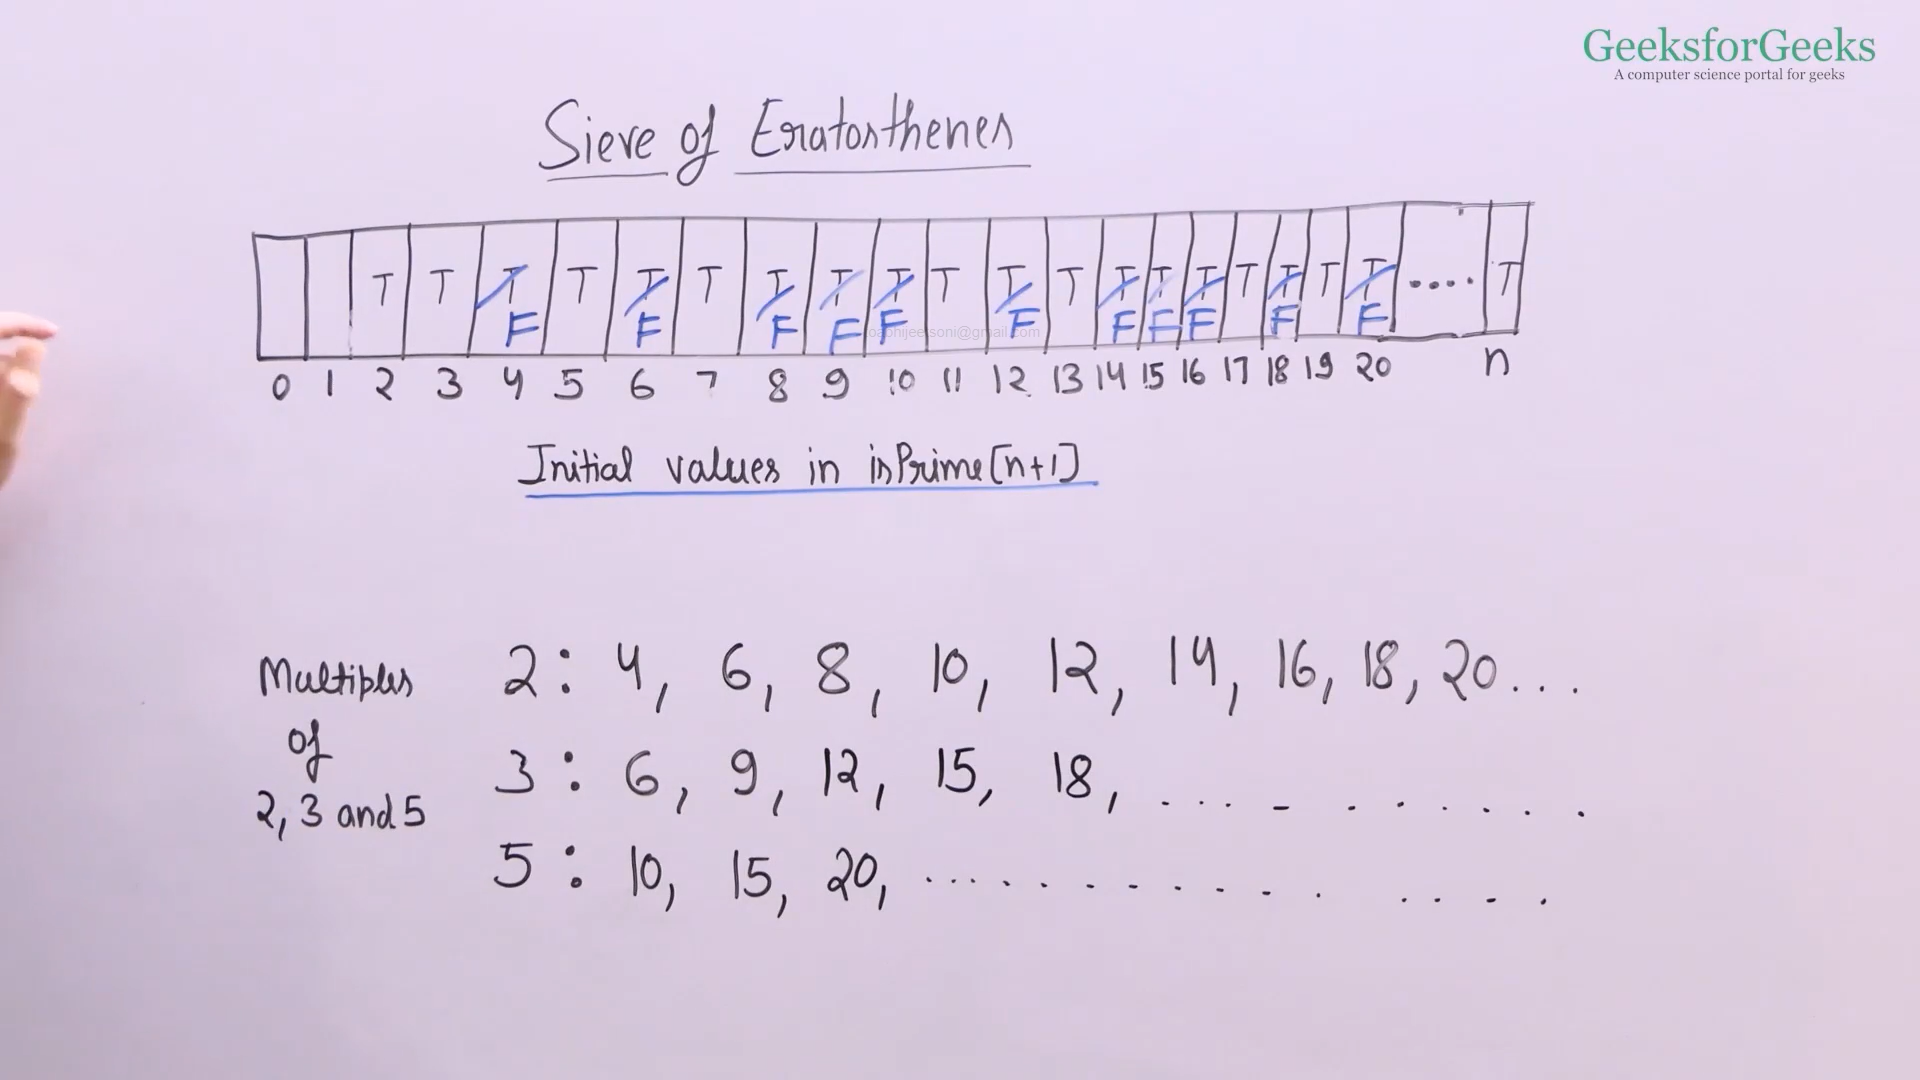 GeeksforGeeks
A computer science portal for geeks
Sieve of Eratosthenes
T T T T T T T T T T T T T T T T T T T .... T
F F F F F F F F F F F
0 1 2 3 4 5 6 7 8 9 10 11 12 13 14 15 16 17 18 19 20 n
Initial values in isPrime[n+1]
Multiples 2: 4, 6, 8, 10, 12, 14, 16, 18, 20...
of 3: 6, 9, 12, 15, 18, ...
2, 3 and 5 5: 10, 15, 20, ...